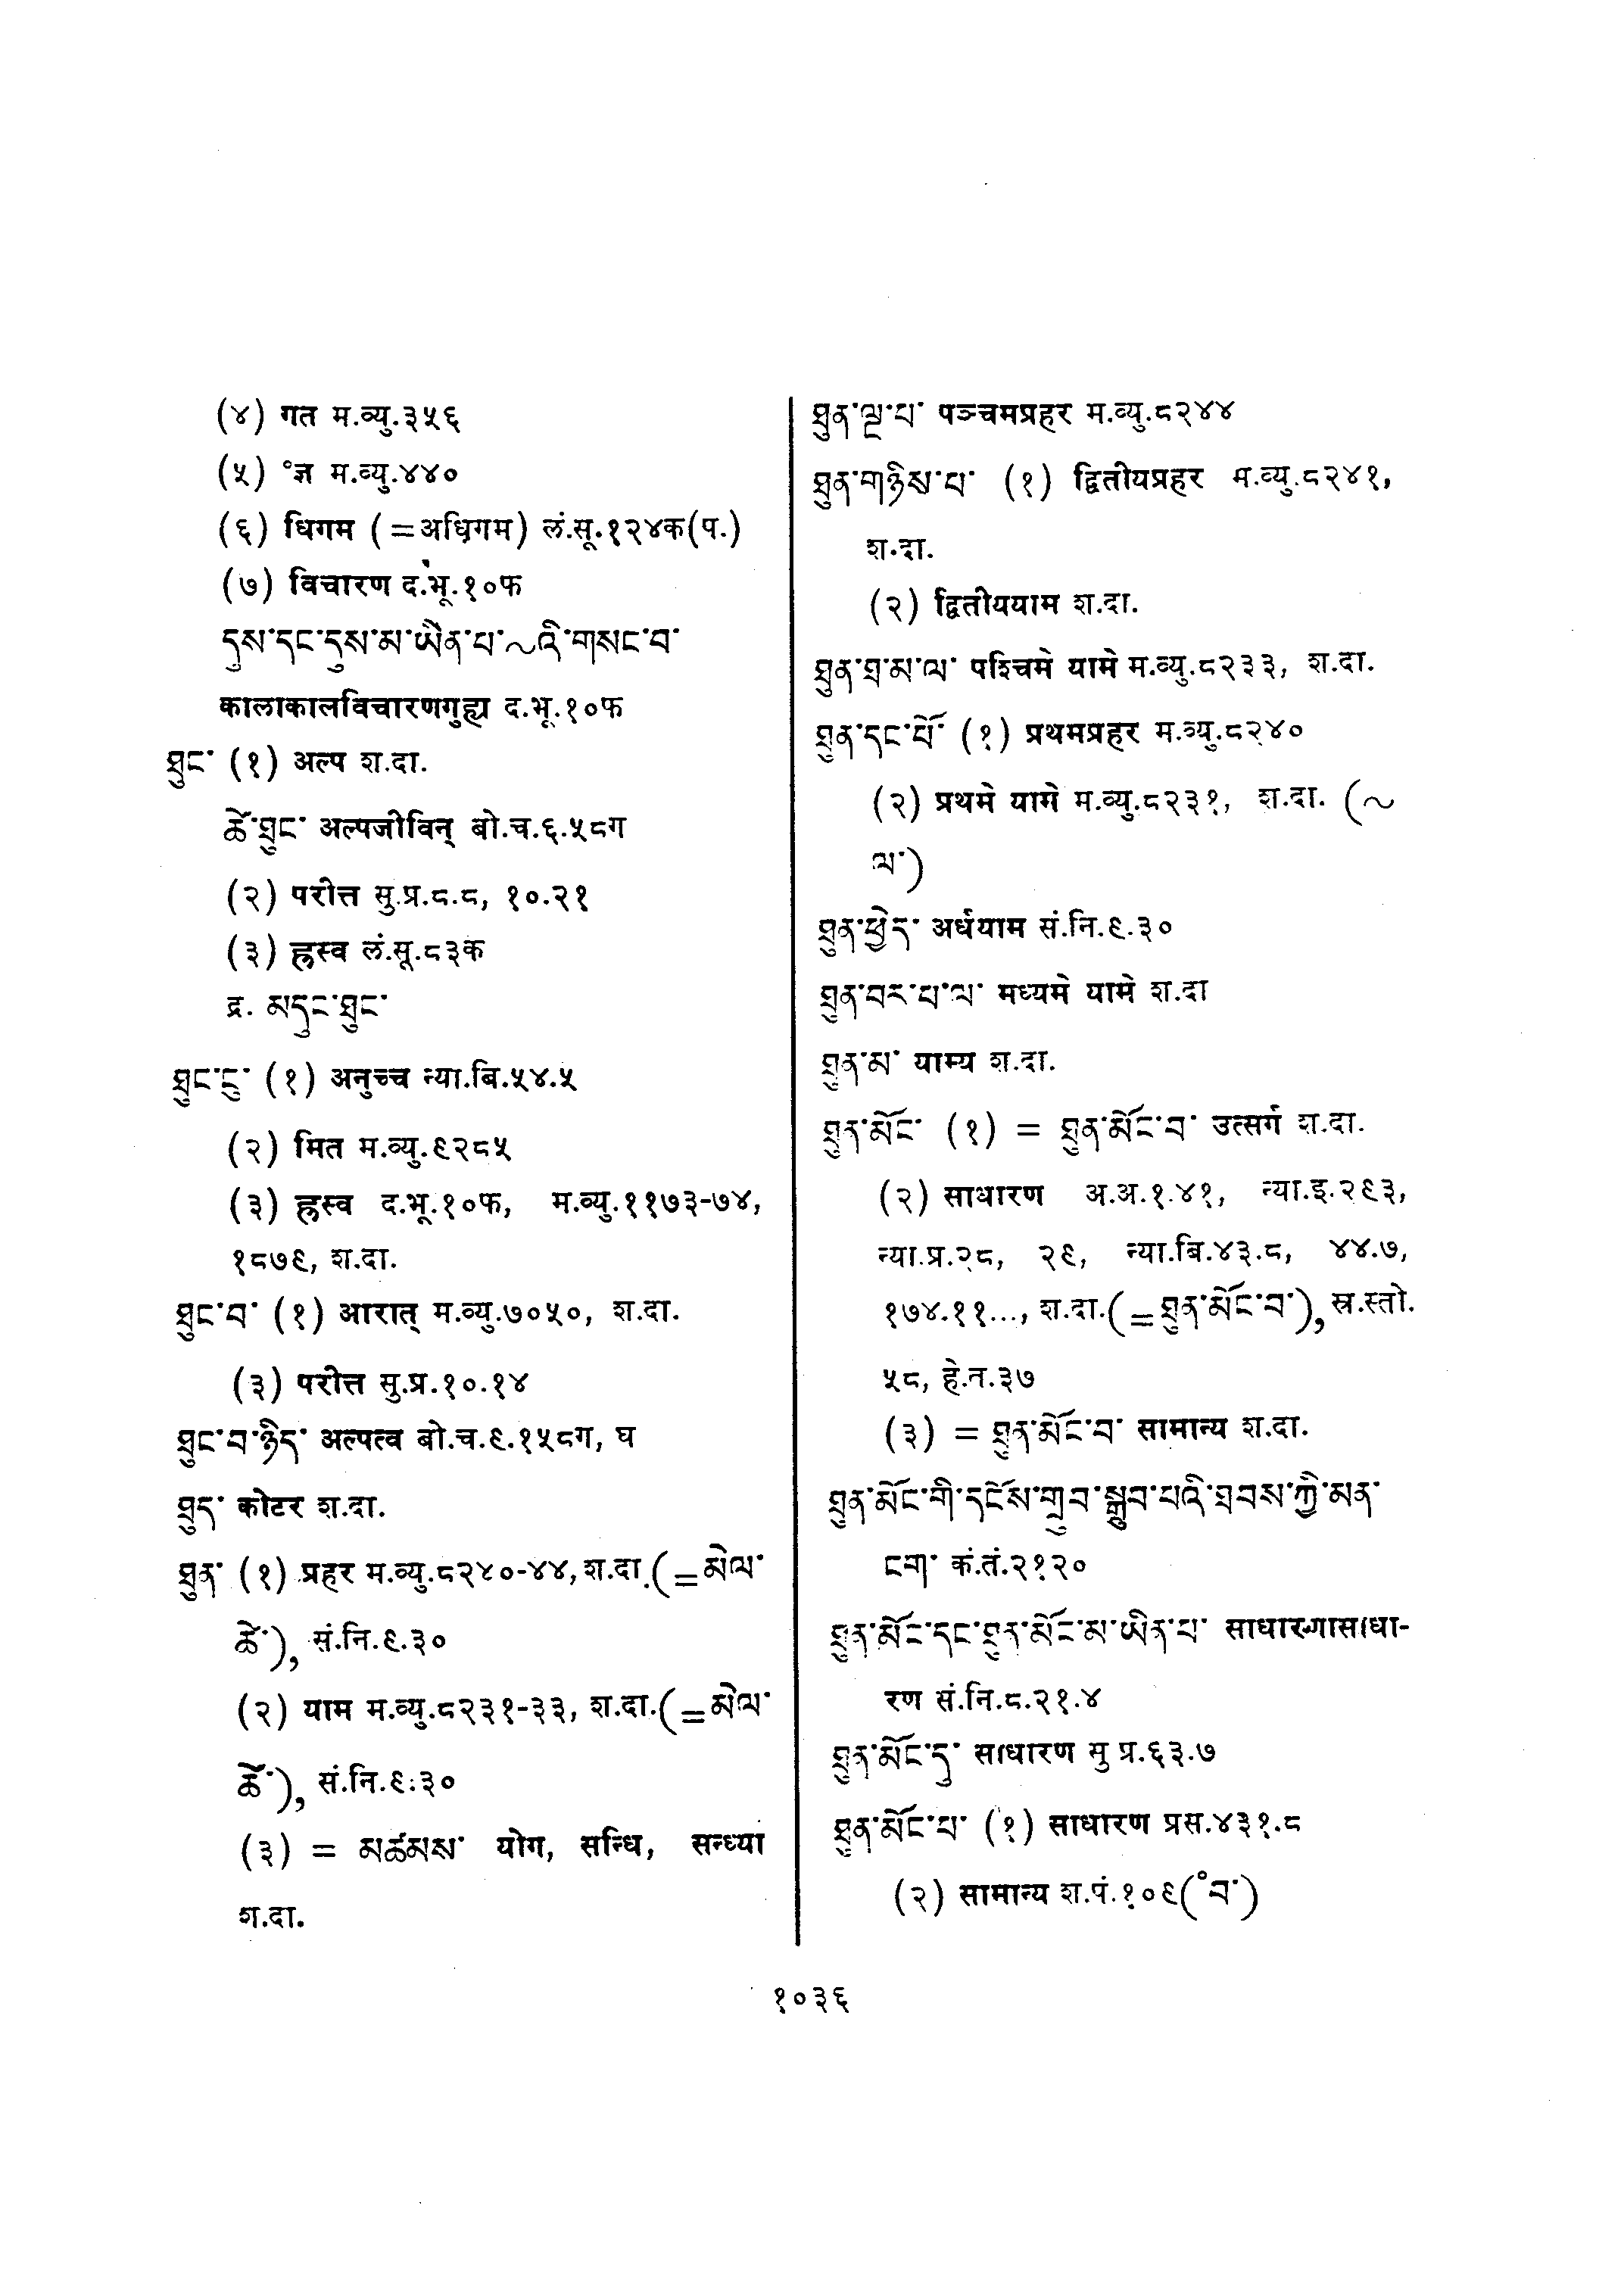 (४) गत म.व्यु.३५६
(५) °ज्ञ म.व्यु.४४०
(६) धिगम (=अधिगम) लं.सू.१२४क(प.)
(७) विचारण द.भू.१०फ
དུས་དང་དུས་མ་ཡིན་པ་~འི་གསང་བ་
कालाकालविचारणगुह्य द.भू.१०फ
ཐུང་ (१) अल्प श.दा.
ཚེ་ཐུང་ अल्पजीविन् बो.च.६.५८ग
(२) परीत्त सु.प्र.८.८, १०.२१
(३) ह्रस्व लं.सू.८३क
द्र. མདུང་ཐུང་
ཐུང་ངུ་ (१) अनुच्च न्या.बि.५४.५
(२) मित म.व्यु.९२८५
(३) ह्रस्व द.भू.१०फ, म.व्यु.११७३-७४,
१८७९, श.दा.
ཐུང་བ་ (१) आरात् म.व्यु.७०५०, श.दा.
(३) परीत्त सु.प्र.१०.१४
ཐུང་བ་ཉིད་ अल्पत्व बो.च.९.१५८ग, घ
ཐུད་ कोटर श.दा.
ཐུན་ (१) प्रहर म.व्यु.८२४०-४४, श.दा.(=མེལ་
ཚེ་), सं.नि.९.३०
(२) याम म.व्यु.८२३१-३३, श.दा.(=མེལ་
ཚེ་), सं.नि.९.३०
(३) = མཚམས་ योग, सन्धि, सन्ध्या
श.दा.
ཐུན་ལྔ་པ་ पञ्चमप्रहर म.व्यु.८२४४
ཐུན་གཉིས་པ་ (१) द्वितीयप्रहर म.व्यु.८२४१,
श.दा.
(२) द्वितीययाम श.दा.
ཐུན་ཐ་མ་ལ་ पश्चिमे यामे म.व्यु.८२३३, श.दा.
ཐུན་དང་པོ་ (१) प्रथमप्रहर म.व्यु.८२४०
(२) प्रथमे यामे म.व्यु.८२३१, श.दा. (~
ལ་)
ཐུན་ཕྱེད་ अर्धयाम सं.नि.९.३०
ཐུན་བར་པ་ལ་ मध्यमे यामे श.दा
ཐུན་མ་ याम्य श.दा.
ཐུན་མོང་ (१) = ཐུན་མོང་བ་ उत्सर्ग श.दा.
(२) साधारण अ.अ.१.४१, न्या.इ.२९३,
न्या.प्र.२८, २९, न्या.बि.४३.८, ४४.७,
१७४.११..., श.दा.(=ཐུན་མོང་བ་), स्र.स्तो.
५८, हे.न.३७
(३) = ཐུན་མོང་བ་ सामान्य श.दा.
ཐུན་མོང་གི་དངོས་གྲུབ་སྒྲུབ་པའི་ཐབས་ཀྱི་མན་
ངག་ कं.तं.२१२०
ཐུན་མོང་དང་ཐུན་མོང་མ་ཡིན་པ་ साधारणासाधा-
रण सं.नि.८.२१.४
ཐུན་མོང་དུ་ साधारण सु प्र.६३.७
ཐུན་མོང་པ་ (१) साधारण प्रस.४३१.८
(२) सामान्य श.पं.१०९(°བ་)
१०३६